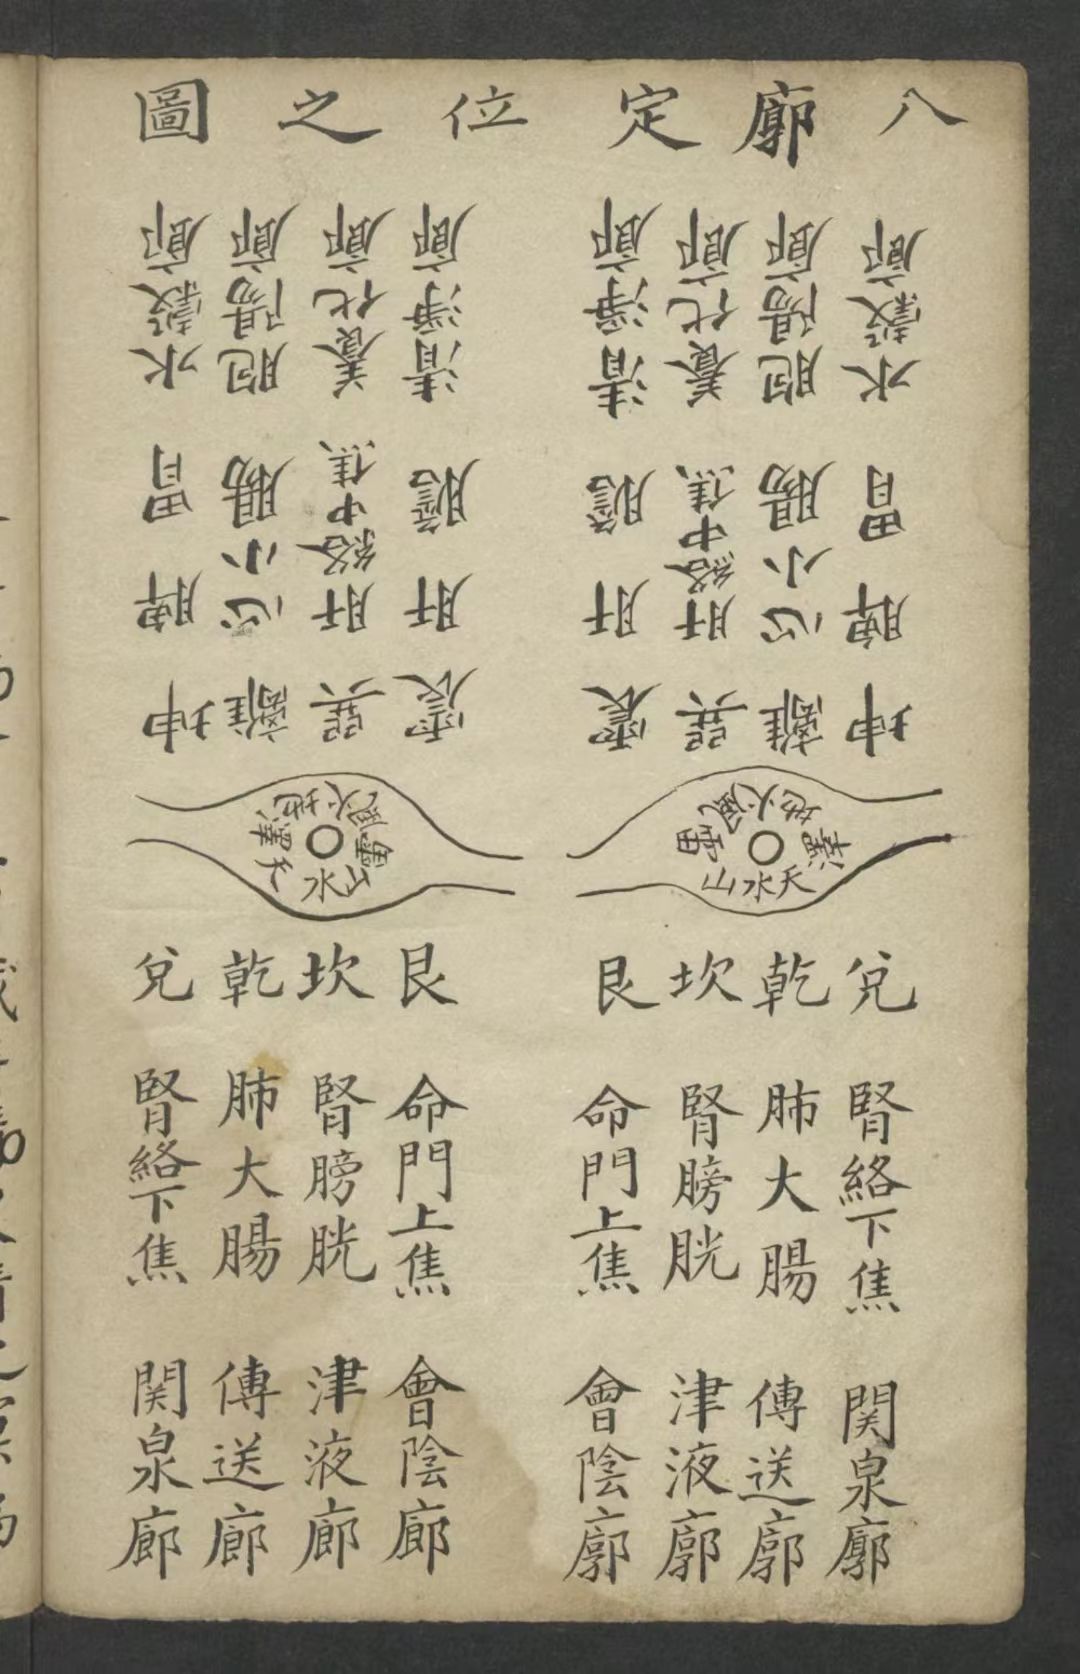 八廓定位之圖
坤 脾胃 水穀廊
離 心小腸 胞陽廊
巽 肝絡中焦 養化廊
震 肝膽 清淨廊
地火風雷山水天澤
兌 腎絡下焦 関泉廓
乾 肺大腸 傳送廓
坎 腎膀胱 津液廓
艮 命門上焦 會陰廓
震 肝膽 清淨廊
巽 肝絡中焦 養化廊
離 心小腸 胞陽廊
坤 脾胃 水穀廊
雷風火地澤天水山
艮 命門上焦 會陰廊
坎 腎膀胱 津液廊
乾 肺大腸 傳送廊
兌 腎絡下焦 関泉廊